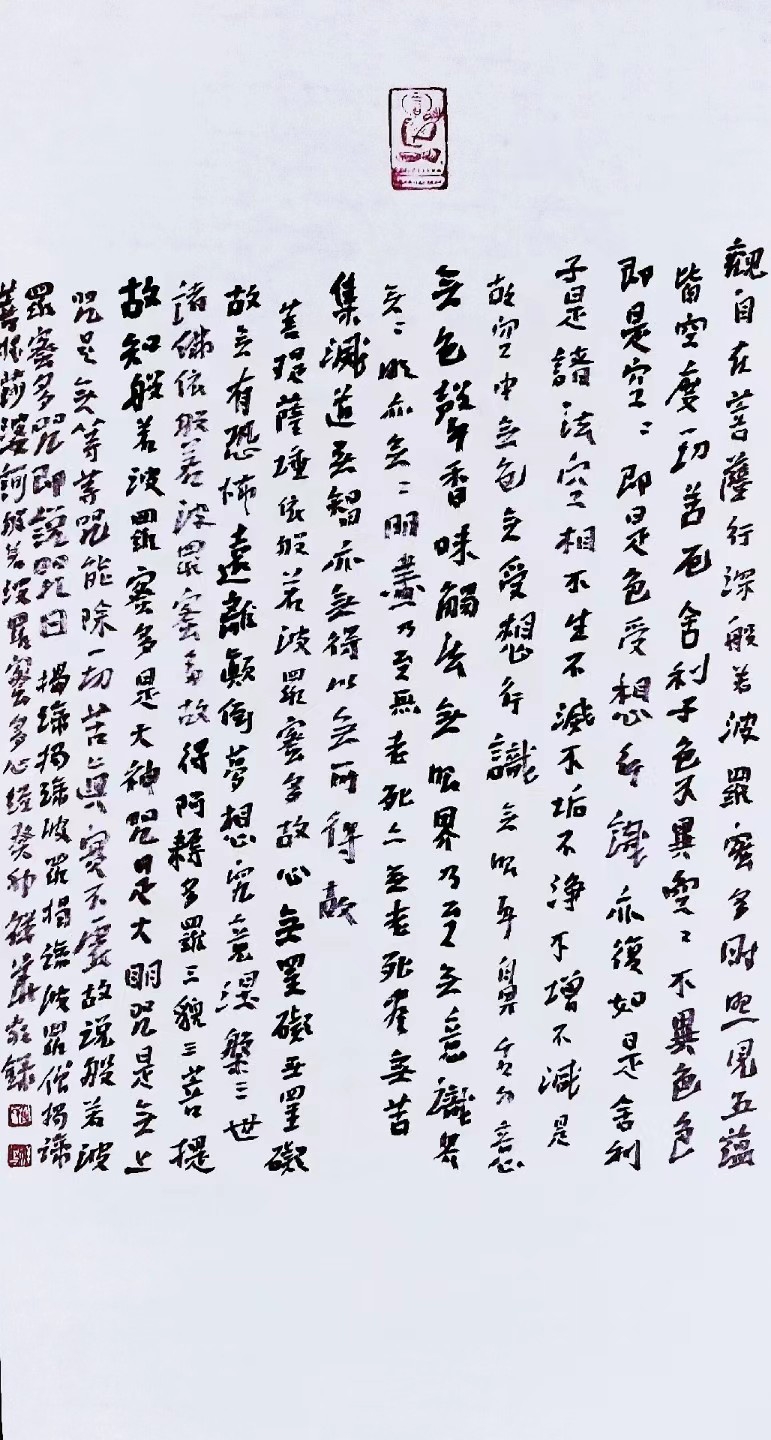 觀自在菩薩行深般若波羅蜜多時照見五蘊
皆空度一切苦厄舍利子色不異空〻不異色色
即是空〻即是色受想行識亦復如是舍利
子是諸法空相不生不滅不垢不淨不增不減是
故空中無色无受想行識无眼耳鼻舌身意
無色聲香味觸法無眼界乃至无意識界
无〻明亦无〻明盡乃至無老死亦无老死盡無苦
集滅道无智亦無得以无所得故
菩提薩埵依般若波羅蜜多故心無罣礙无罣礙
故无有恐怖遠離顛倒夢想究竟涅槃三世
諸佛依般若波羅蜜多故得阿耨多羅三藐三菩提
故知般若波羅蜜多是大神咒是大明咒是无上
咒是无等等咒能除一切苦真實不虛故說般若波
羅蜜多咒即說咒曰揭諦揭諦波羅揭諦波羅僧揭諦
菩提薩婆訶般若波羅蜜多心經癸卯敬錄